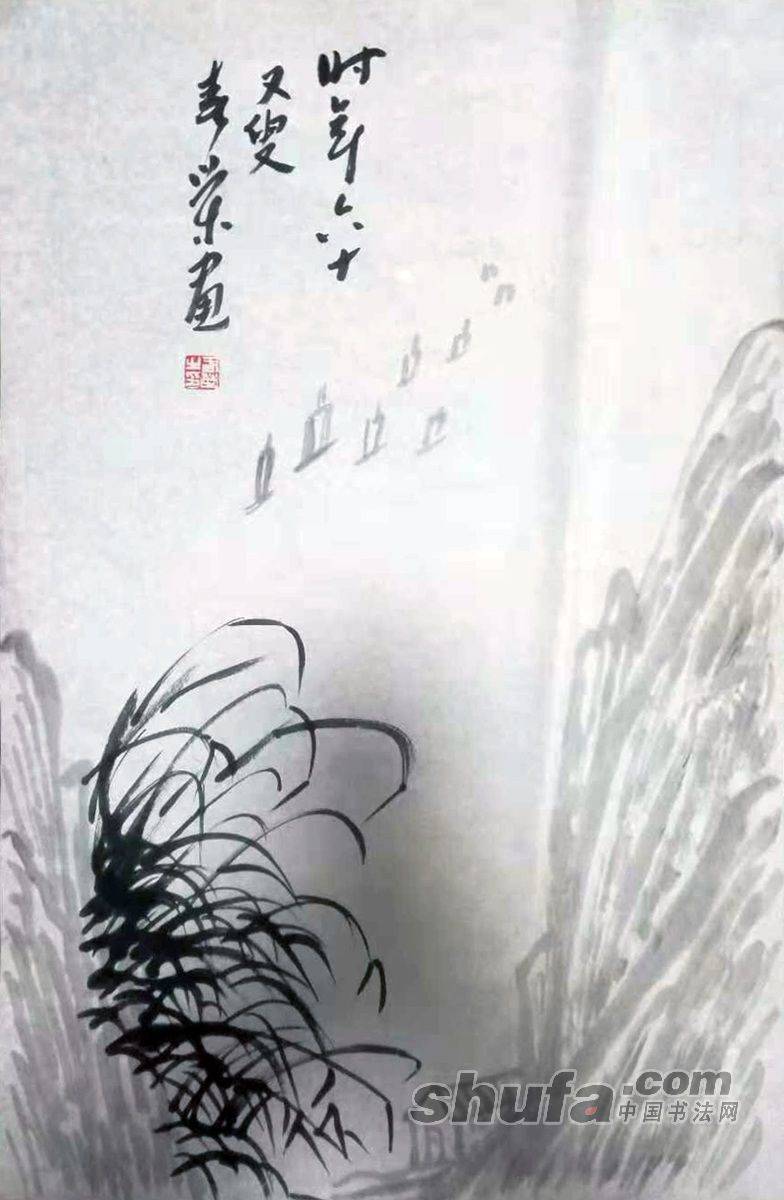 时年六十
又叟
画
shufa.com
中国书法网